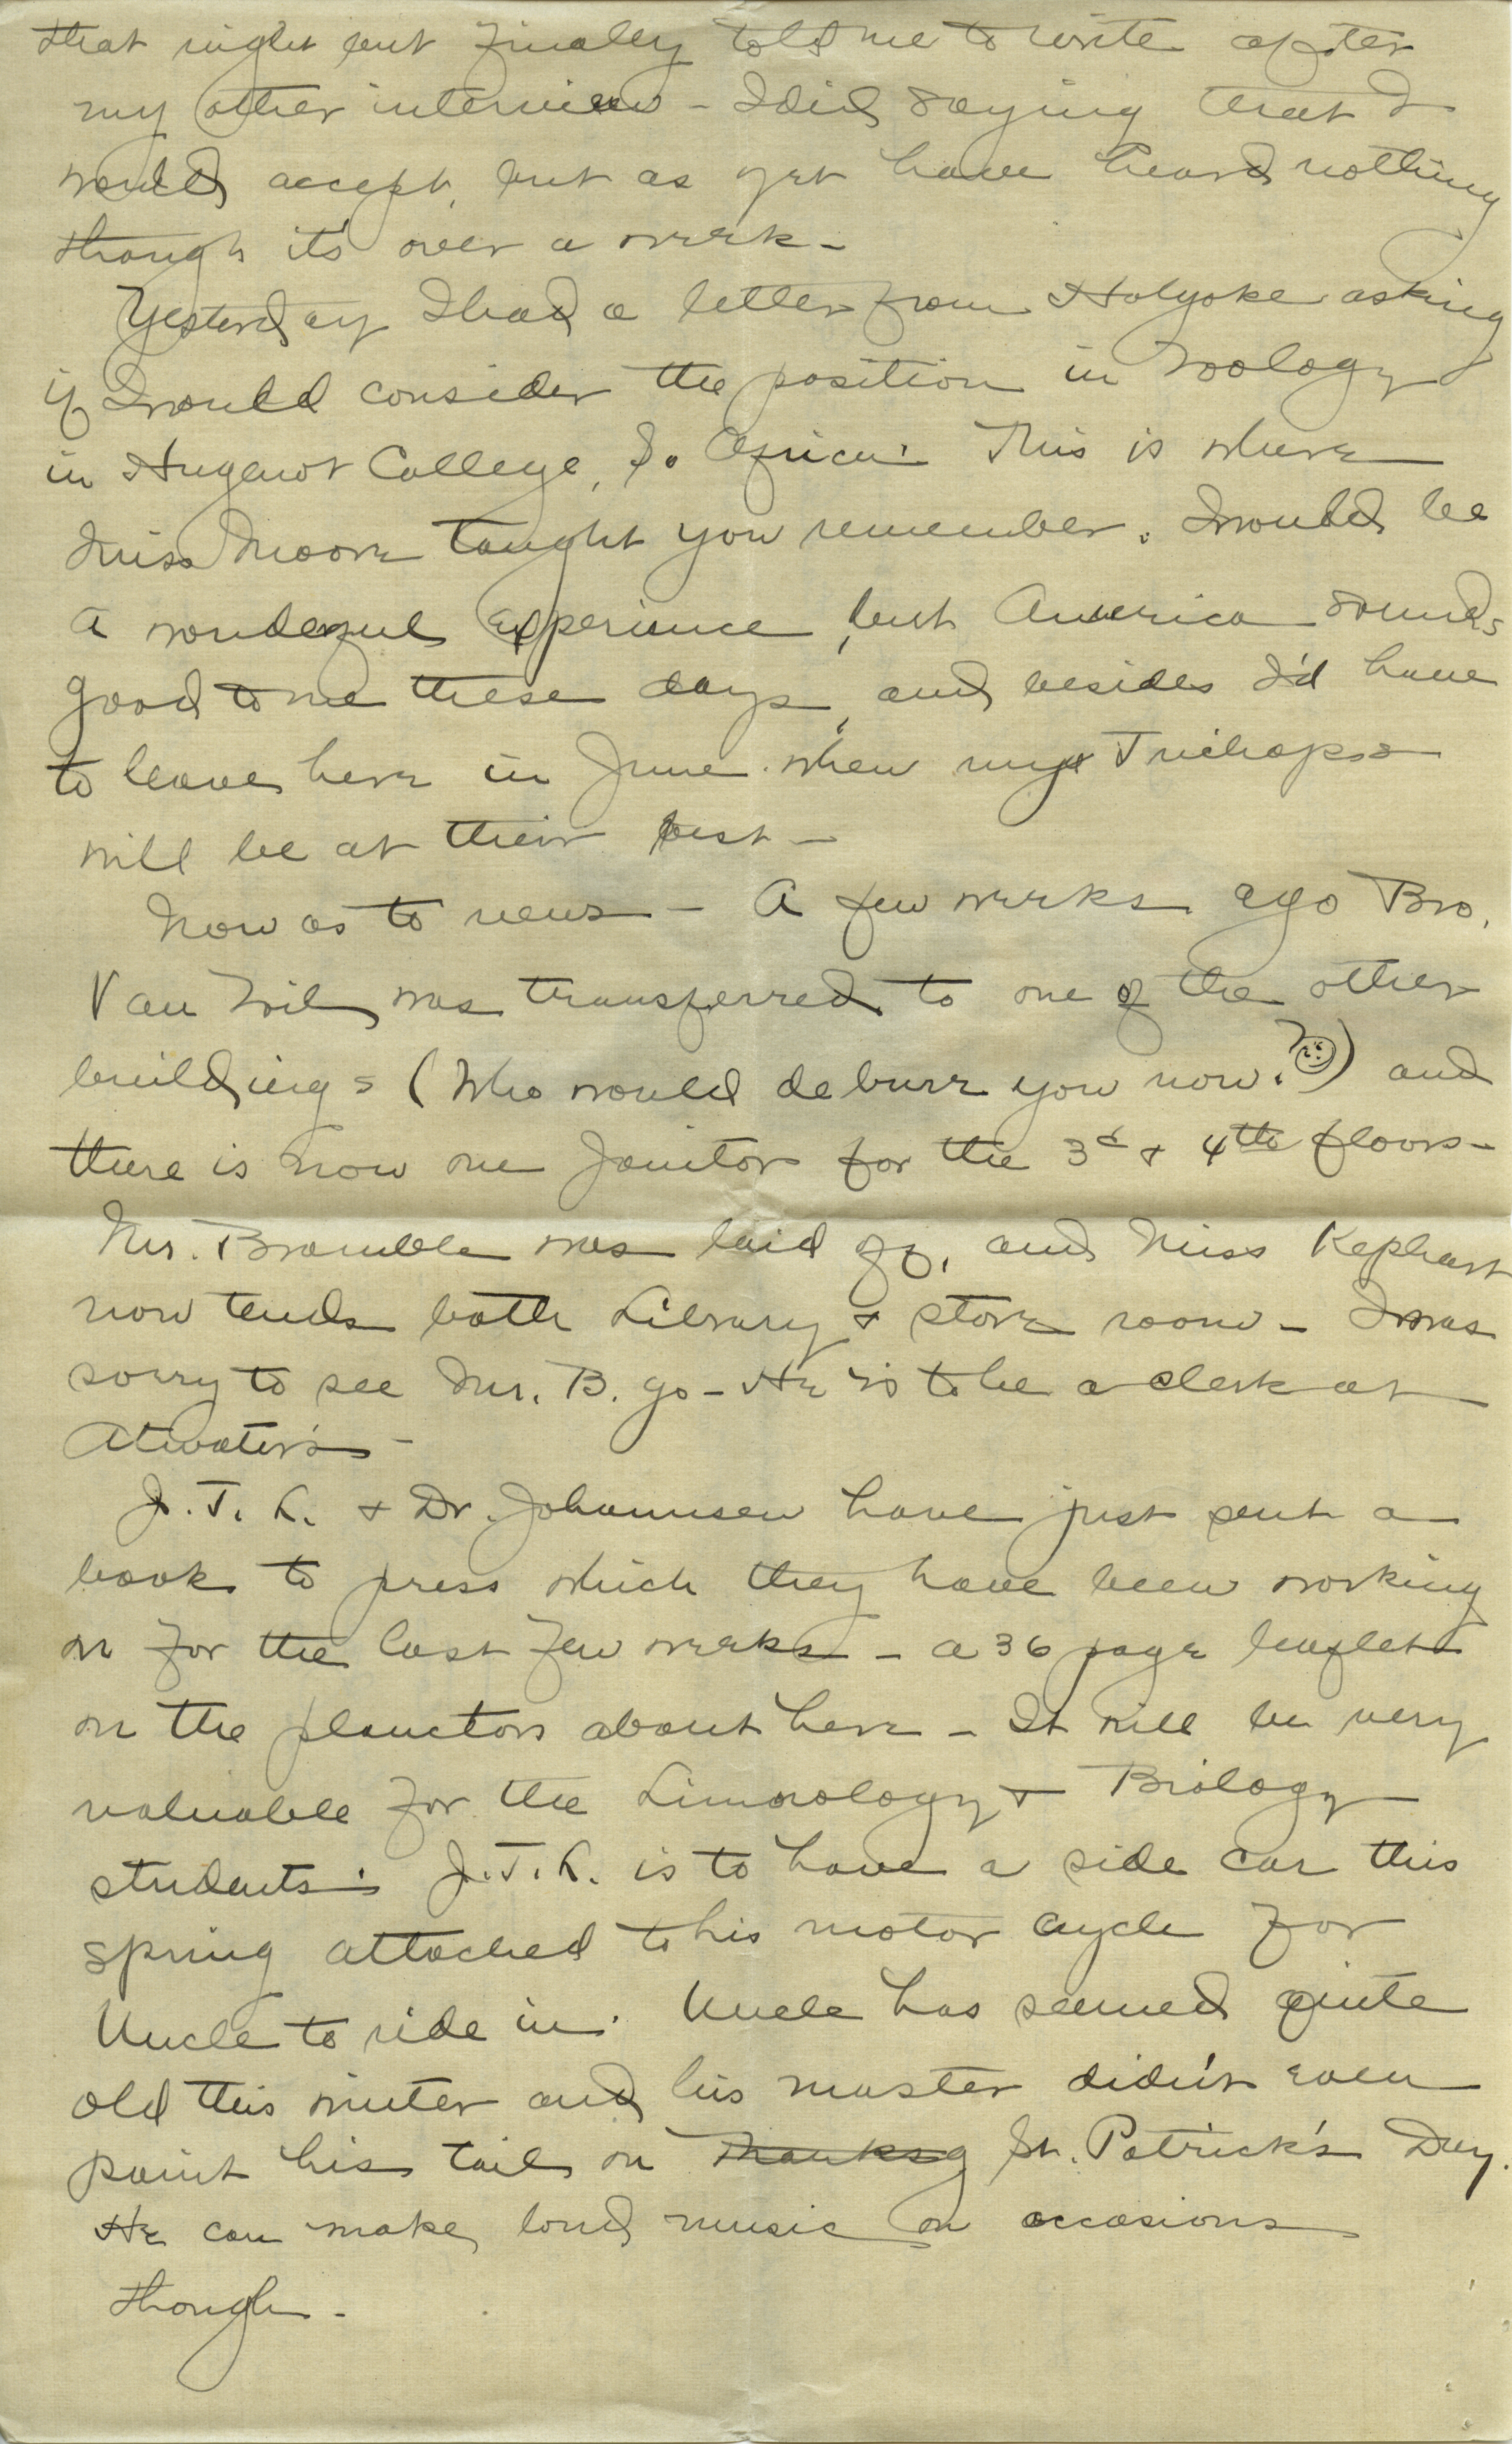 that night but finally told me to write after
my other interview - I did saying that I
would accept, but as yet have heard nothing
though it's over a week -
Yesterday I had a letter from Holyoke asking
if I would consider the position in Zoology
in Hugenot College, So. Africa. This is where
Miss Moore taught you remember. I would be
a wonderful experience, but America sounds
good to me these days, and besides I'd have
to leave here in June when my Trichops
will be at their best -
Now as to news - A few weeks ago Bro.
Van Wil was transferred to one of the other
buildings (Who would deburr you now?) and
there is now one Janitor for the 3d & 4th floors -
Mr. Bramble was laid off, and Miss Kephart
now tends both Library & store room - I was
sorry to see Mr. B. go - He is to be a clerk at
Atwater's -
J. T. L. & Dr. Johannsen have just sent a
book to press which they have been working
on for the last few weeks - a 36 page leaflet
on the plancton about here - It will be very
valuable for the Limnology & Biology
students. J. T. L. is to have a side car this
spring attached to his motor cycle for
Uncle to ride in. Uncle has seemed quite
old this winter and his master didn't even
paint his tail on Thanksg St. Patrick's Day.
He can make loud music on occasions
though -